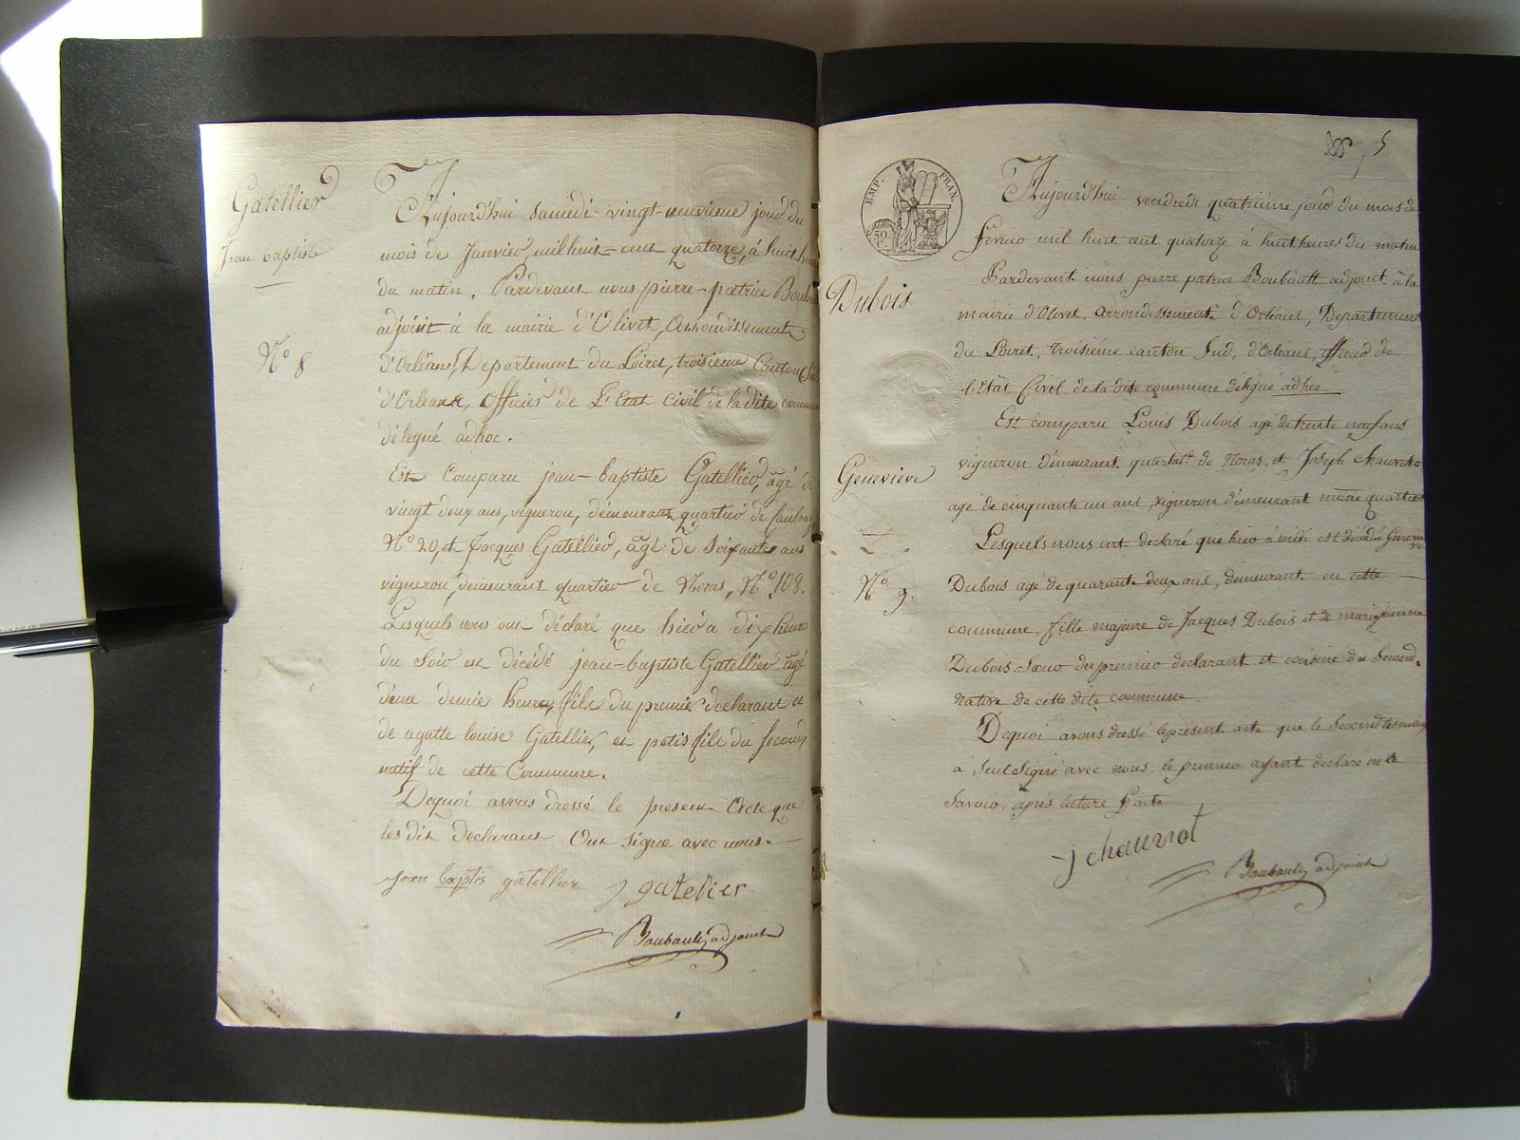 Gatellier
Jean baptiste
N° 8
Aujourd'hui samedi vingt-neuvieme jour du
mois de Janvier, mil huit-cent quatorze, à huit h
du matin. Pardevant nous pierre-patrice Boub
adjoint à la mairie d'Olivet, Arrondissement
d'Orléans, Departement du Loiret, troisieme Canton
d'Orleans, Officier de L'Etat Civil de la dite commune
délegué adhoc.
Est Comparu jean-baptiste Gatellier, âgé de
vingt deux ans, vigneron, demeurant quartier de
N° 29, et Jacques Gatellier, âgé de Soixante ans
vigneron, demeurant quartier de Noras, N° 108.
Lesquels nous ont déclaré que hier à dix heure
du Soir est décédé jean-baptiste Gatellier âgé
d'une demie heure, fils du premier declarant et
de agatte louise Gatellier, et petit fils du second
natif de cette Commune.
Dequoi avons dressé le present Acte que
les dits declarans Ont Signé avec nous.
jean baptis gatellier j gatelier
Boubault adjoint
5
EMP. FRAN.
50
Dubois
Genevieve
N° 9.
Aujourd'hui vendredi quatrieme jour du mois de
fevrier mil huit cent quatorze à huit heures du matin
Pardevant nous pierre patrice Boubault adjoint à la
mairie d'Olivet, arrondissement d'Orleans, Departement
du Loiret, troisieme canton Sud, d'Orleans, officier de
l'Etat Civil de la dite commune delegué adhoc
Est comparu Louis Dubois agé de trente neuf ans
vigneron demeurant quartier de Noras, et Joseph Chauvrot
agé de cinquante un ans, vigneron demeurant même quartier
Lesquels nous ont declaré que hier à midi est décédé Genevieve
Dubois agé de quarante deux ans, demeurant en cette
commune, fille majeure de Jacques Dubois et de marie
Dubois Soeur du premier declarant et cousine du Second.
native de cette dite commune
Dequoi avons dressé le présent acte que le Second temoin
a Seul Signé avec nous, le premier ayant declaré ne le
Savoir, après lecture faite
j chauvrot
Boubault adjoint